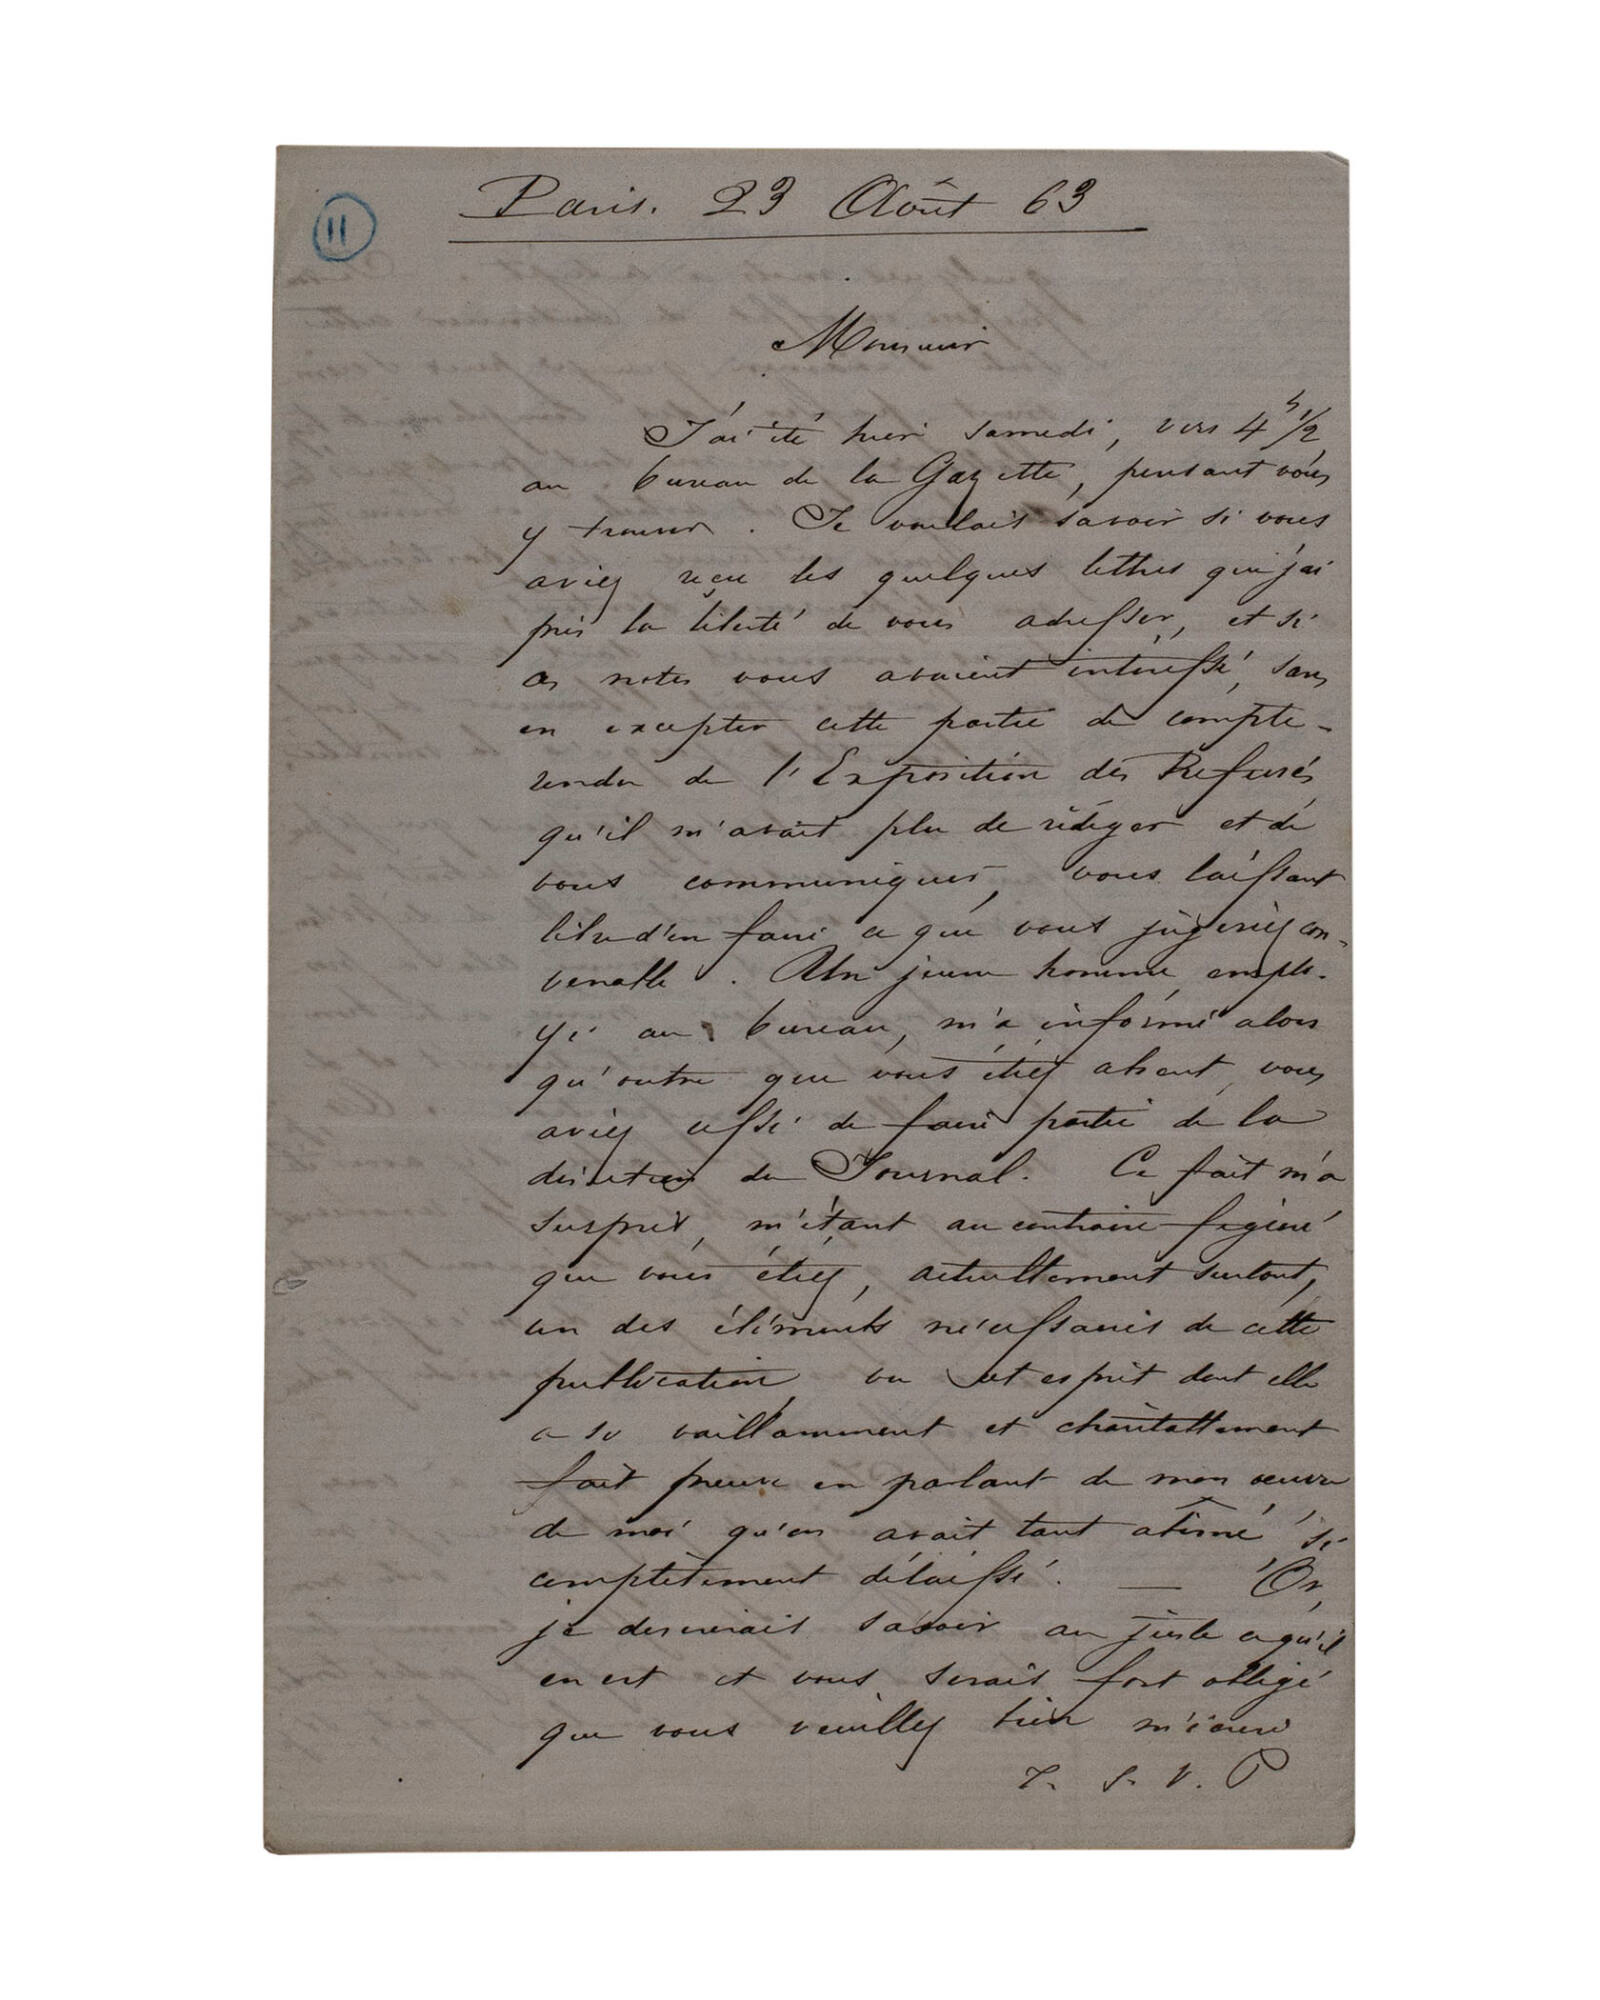 11
Paris. 23 Août 63
Monsieur
J'ai été hier samedi, vers 4 h 1/2
au bureau de la Gazette, pensant vous
y trouver. Je voulais savoir si vous
aviez reçu les quelques lettres que j'ai
pris la liberté de vous adresser, et si
ces notes vous avaient intéressé, sans
en excepter cette partie de compte-
rendu de l'Exposition des Refusés
qu'il m'avait plu de rédiger et de
vous communiquer, vous laissant
libre d'en faire ce que vous jugeriez con-
venable. Un jeune homme, emplo-
yé au bureau, m'a informé alors
qu'outre que vous étiez absent, vous
aviez cessé de faire partie de la
direction du Journal. Ce fait m'a
surpris, m'étant au contraire figuré
que vous étiez, actuellement surtout,
un des éléments nécessaires de cette
publication, vu cet esprit dont elle
a su vaillamment et charitablement
fait preuve en parlant de mon œuvre
de moi qu'on avait tant abîmé, si
complètement délaissé. — Or,
je desirerais savoir au juste ce qu'il
en est et vous serais fort obligé
que vous veuillez bien m'écrire
T. S. V. P